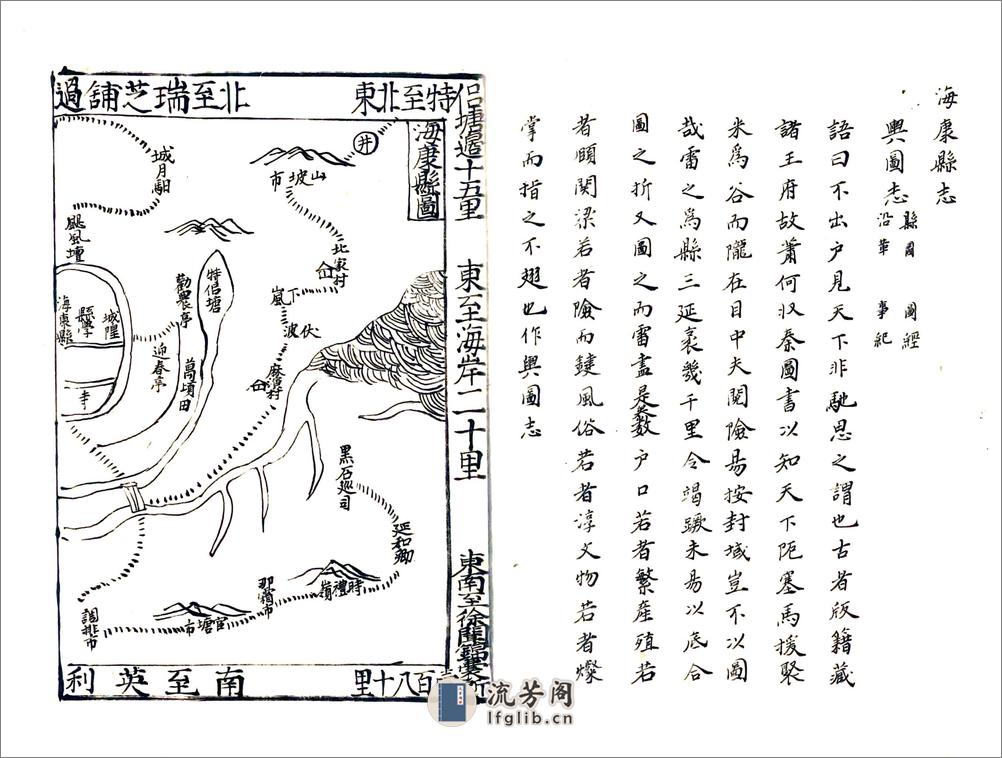 海康縣志
輿圖志 縣圖 圖經
沿革 事紀
語曰不出户見天下非馳思之謂也古者版籍藏
諸王府故蕭何收秦圖書以知天下阨塞馬援聚
米爲谷而隴在目中夫閱險易按封域豈不以圖
哉雷之爲縣三延袤幾千里令竭蹶未易以底合
圖之折又圖之而雷盡是矣數户口若者繁産殖若
者頤関梁若者險而鍵風俗若者淳文物若者燦
掌而指之不翅也作輿圖志
海康縣圖
北至瑞芝舖過
東北至特
侣塘邉十五里
東至海岸二十里
東南至徐聞錦囊所
壹百八十里
南至英利
井
山坡市
城月馹
颶風壇
北家村
下嵐
特侣塘
勸農亭
城隍
縣學
海康縣
寺
迎春亭
萬頃田
伏波
麻演村
黑石巡司
延和鄉
時禮嶺
那宿市
官塘市
調排市
流芳阁
lfglib.cn